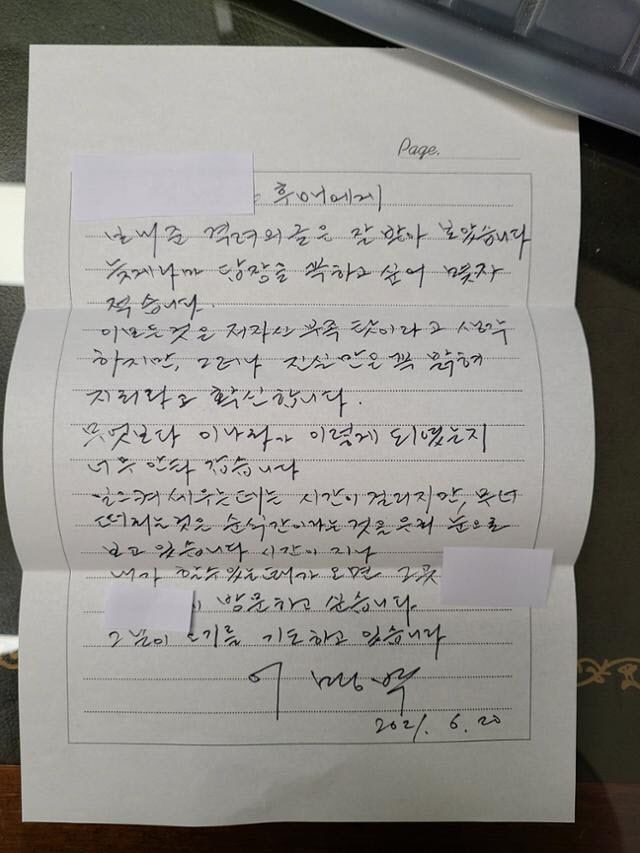 Page.
후배에게
보내준 격려의 글은 잘 받아 보았습니다
늦게나마 답장을 쓰고 싶어 몇자
적습니다.
이모든것은 저자신 부족 탓이라고 생각
하지만, 그러나 진실만은 꼭 밝혀
지리라고 확신합니다.
무엇보다 이나라가 이렇게 되였는지
너무 안타 깝습니다
일으켜 세우는데는 시간이 걸리지만, 무너
떠리는것은 순식간이라는것을 우리 눈으로
보고 있습니다 시간이 지나
내가 할수있는때가 오면 그곳
방문하고 싶습니다.
그날이 오기를 기도하고 있습니다
이 명박
2021. 6. 20